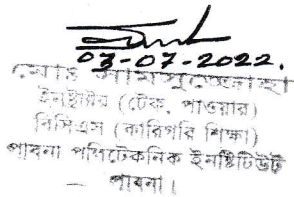 03-07-2022.
মোঃ সামসুজ্জোহা
ইনস্ট্রাক্টর (টেক, পাওয়ার)
বিসিএস (কারিগরি শিক্ষা)
পাবনা পলিটেকনিক ইনষ্টিটিউট
পাবনা।